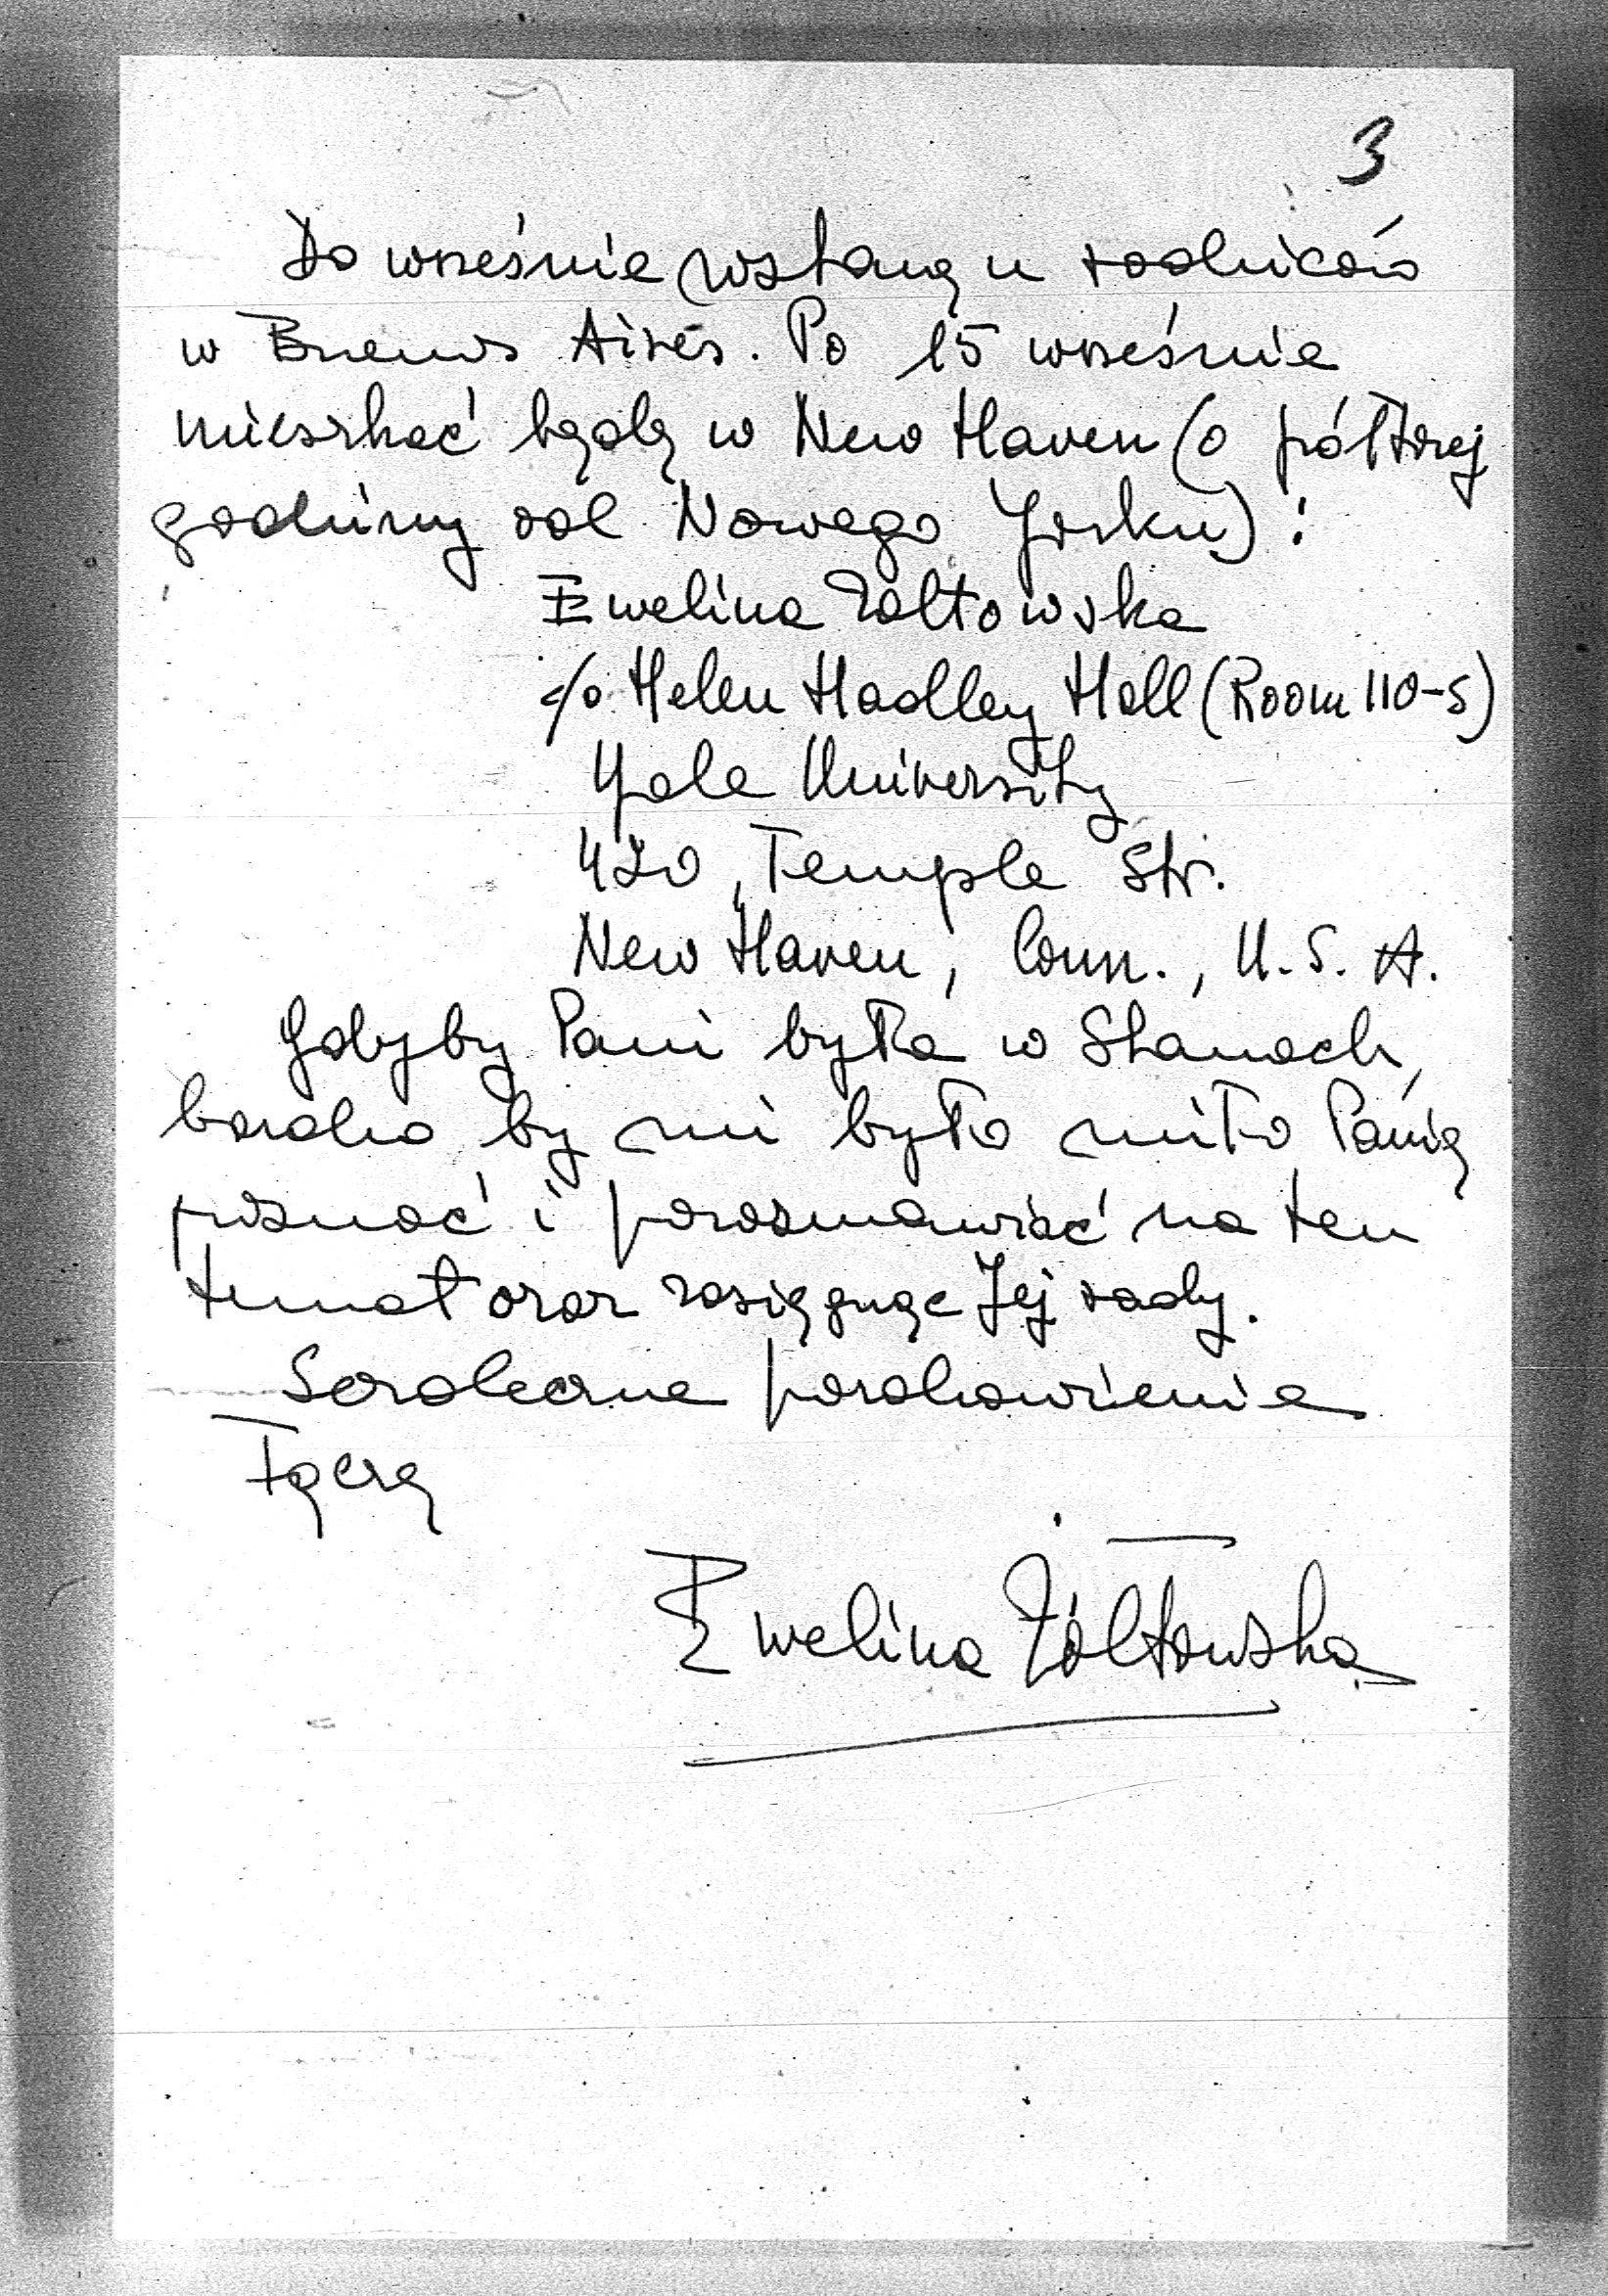 3
Do września zostanę u rodziców
w Buenos Aires. Po 15 września
mieszkać będę w New Haven (o półtorej
godziny od Nowego Jorku):
Ewelina Żółtowska
c/o Helen Hadley Hall (Room 110-S)
Yale University
420, Temple Str.
New Haven, Conn., U.S.A.
Gdyby Pani była w Stanach,
bardzo by mi było miło Panią
poznać i porozmawiać na ten
temat oraz zasięgnąć Jej rady.
Serdeczne pozdrowienia
łączę
Ewelina Żółtowska